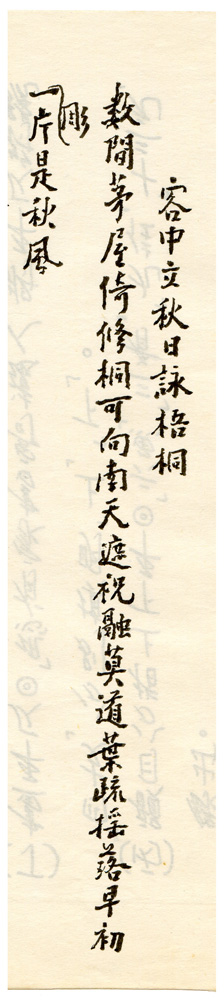 客中立秋日詠梧桐
数間茅屋倚修桐可向南天遮祝融莫道葉疏搖落早初
彫
一片是秋風